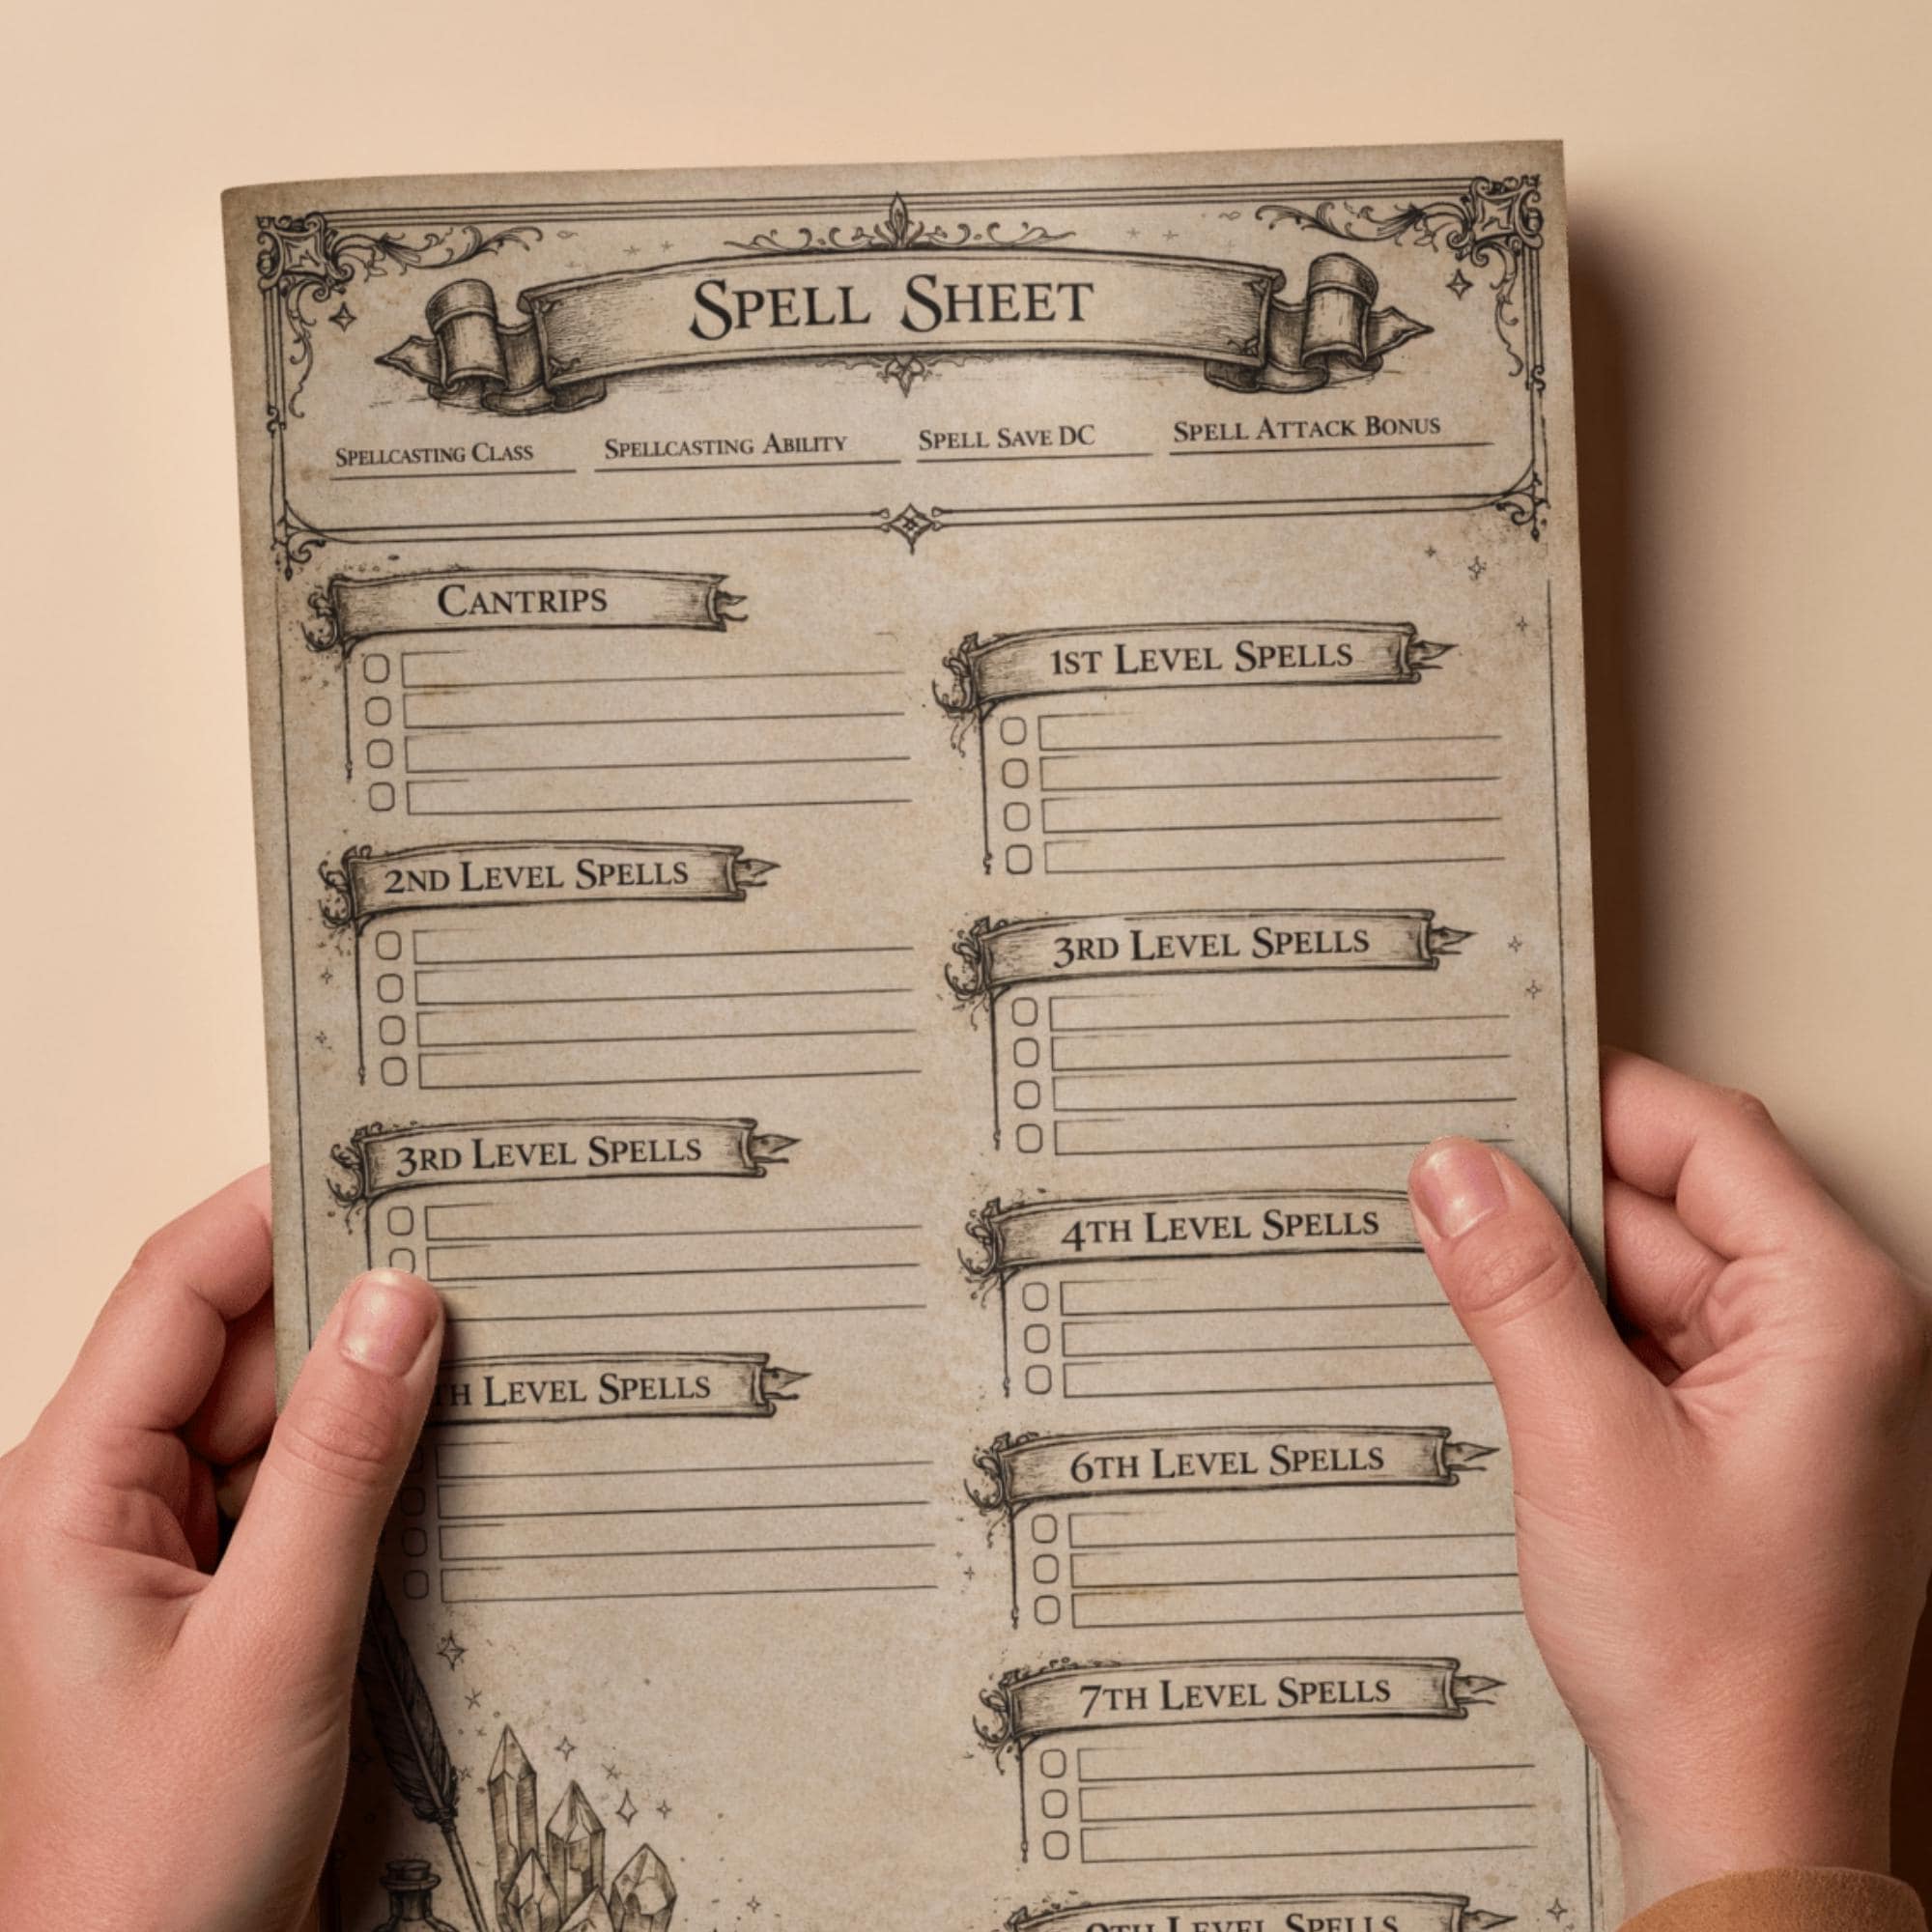 Spell Sheet
Spellcasting Class
Spellcasting Ability
Spell Save DC
Spell Attack Bonus
Cantrips
1st Level Spells
2nd Level Spells
3rd Level Spells
3rd Level Spells
4th Level Spells
Level Spells
6th Level Spells
7th Level Spells
Level Spells